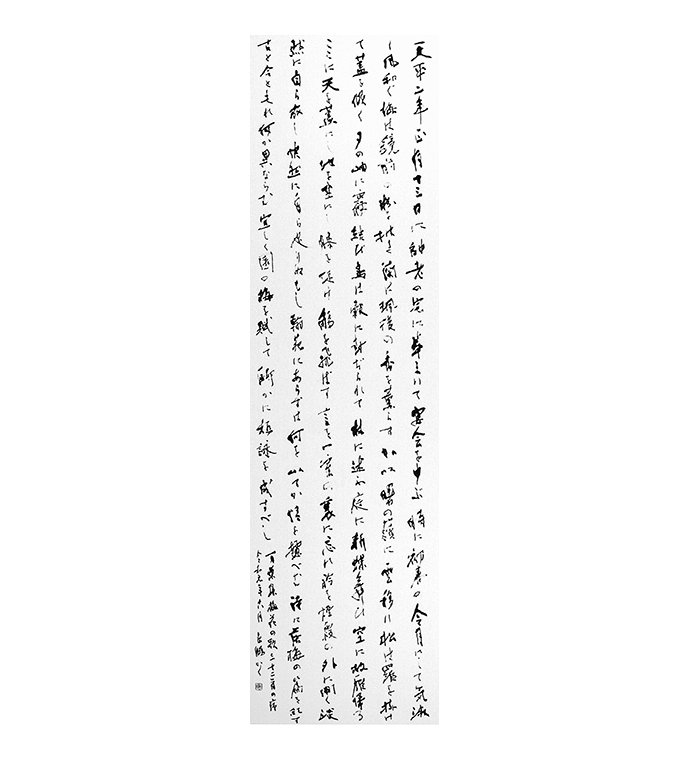 天平二年正月十三日に 師老の宅に萃まりて 宴会を申ぶ 時に初春の令月にして 気淑
く風和ぐ 梅は鏡前の粉を披き 蘭は珮後の香を薫らす 加以 曙の嶺に雲移り 松は羅を掛け
て蓋を傾く 夕の岫に霧結び 鳥は縠に封ぢられて林に迷ふ 庭に新蝶舞ひ 空に故雁帰る
ここに天を蓋にし 地を坐にし 膝を促け觴を飛ばす 言を一室の裏に忘れ 衿を煙霞の外に開く 淡
然に自ら放し 快然に自ら足りぬ もし翰苑にあらずは 何を以てか情を攄べむ 詩に落梅の篇を紀す
古と今と夫れ何か異ならむ 宜しく園の梅を賦して 聊かに短詠を成すべし
万葉集梅花の歌三十二首の序
令和元年六月 かく